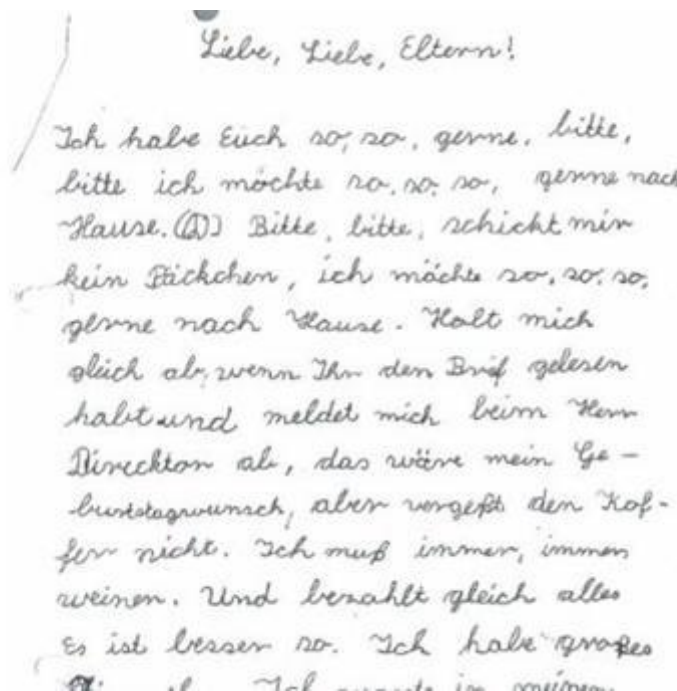 Liebe, Liebe, Eltern!
Ich habe Euch so, so, gerne, bitte,
bitte ich möchte so, so, so, gerne nach
Hause. Bitte, bitte, schickt mir
kein Päckchen, ich möchte so, so, so,
gerne nach Hause. Holt mich
gleich ab, wenn Ihr den Brief gelesen
habt und meldet mich beim Herr
Direcktor ab, das wäre mein Ge-
burtstagwunsch, aber vergeßt den Kof-
fer nicht. Ich muß immer, immer
weinen. Und bezahlt gleich alles
Es ist besser so. Ich habe großes
Ich in meinem